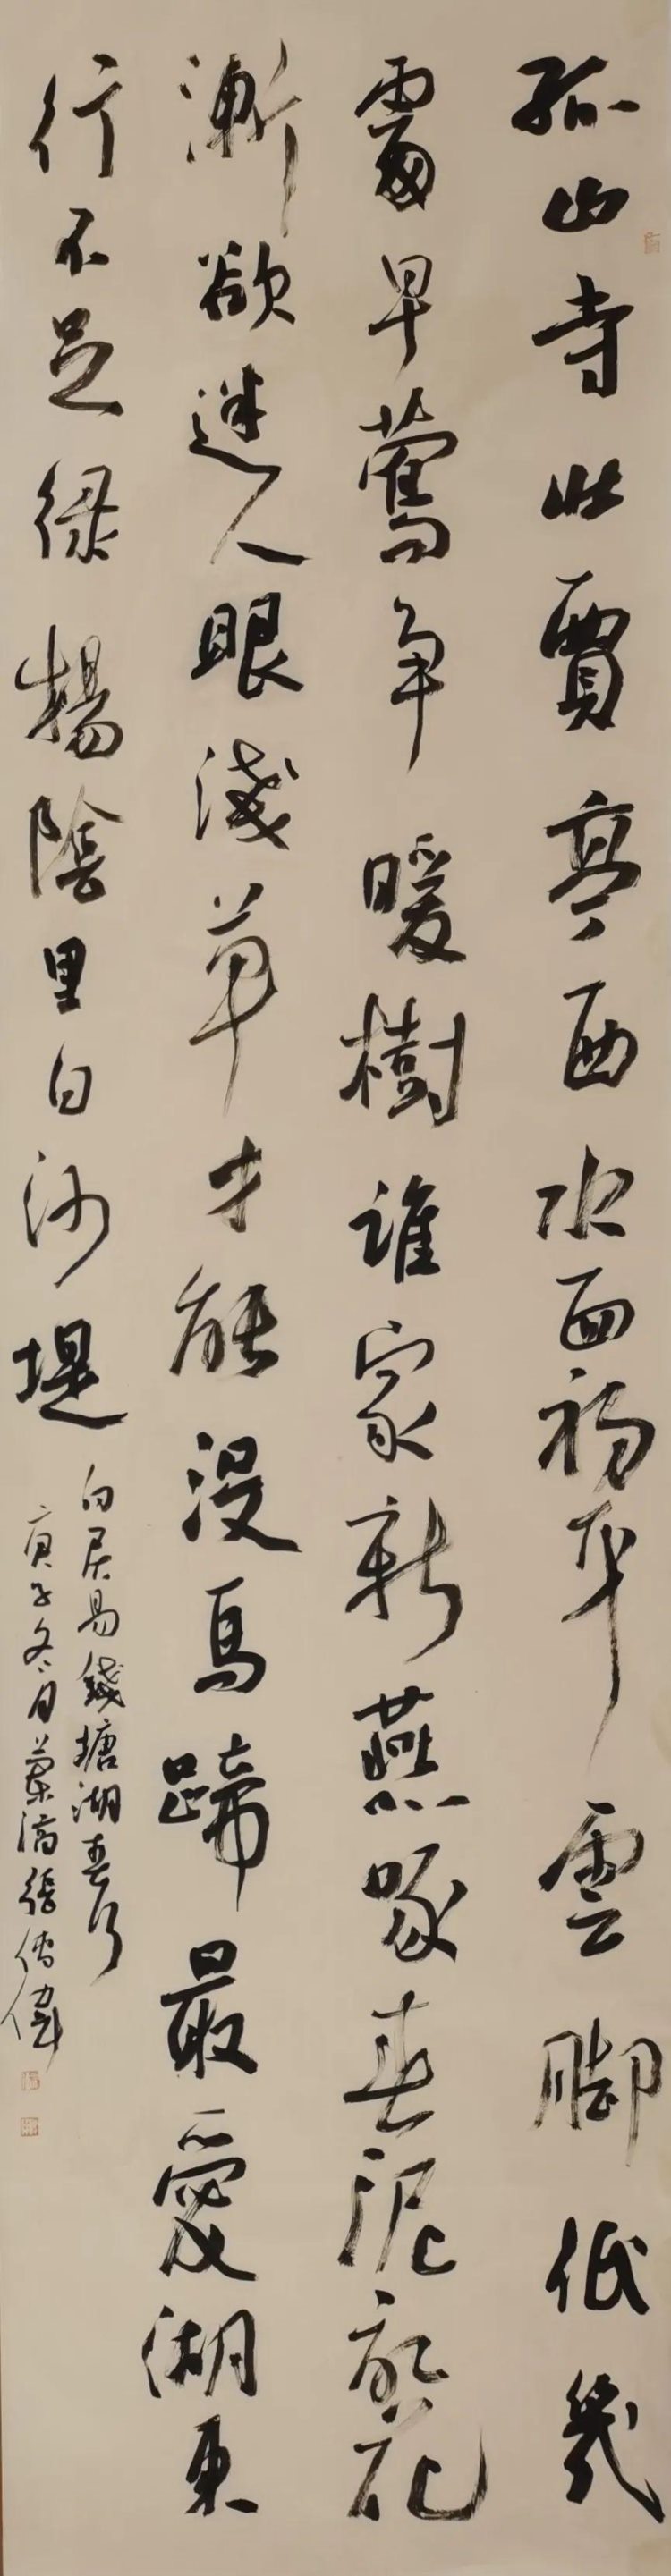 孤山寺北賈亭西水面初平雲脚低幾
處早鶯争暖樹誰家新燕啄春泥亂花
漸欲迷人眼淺草才能没馬蹄最愛湖東
行不足緑楊陰里白沙堤
白居易錢塘湖春行
庚子冬月張偉